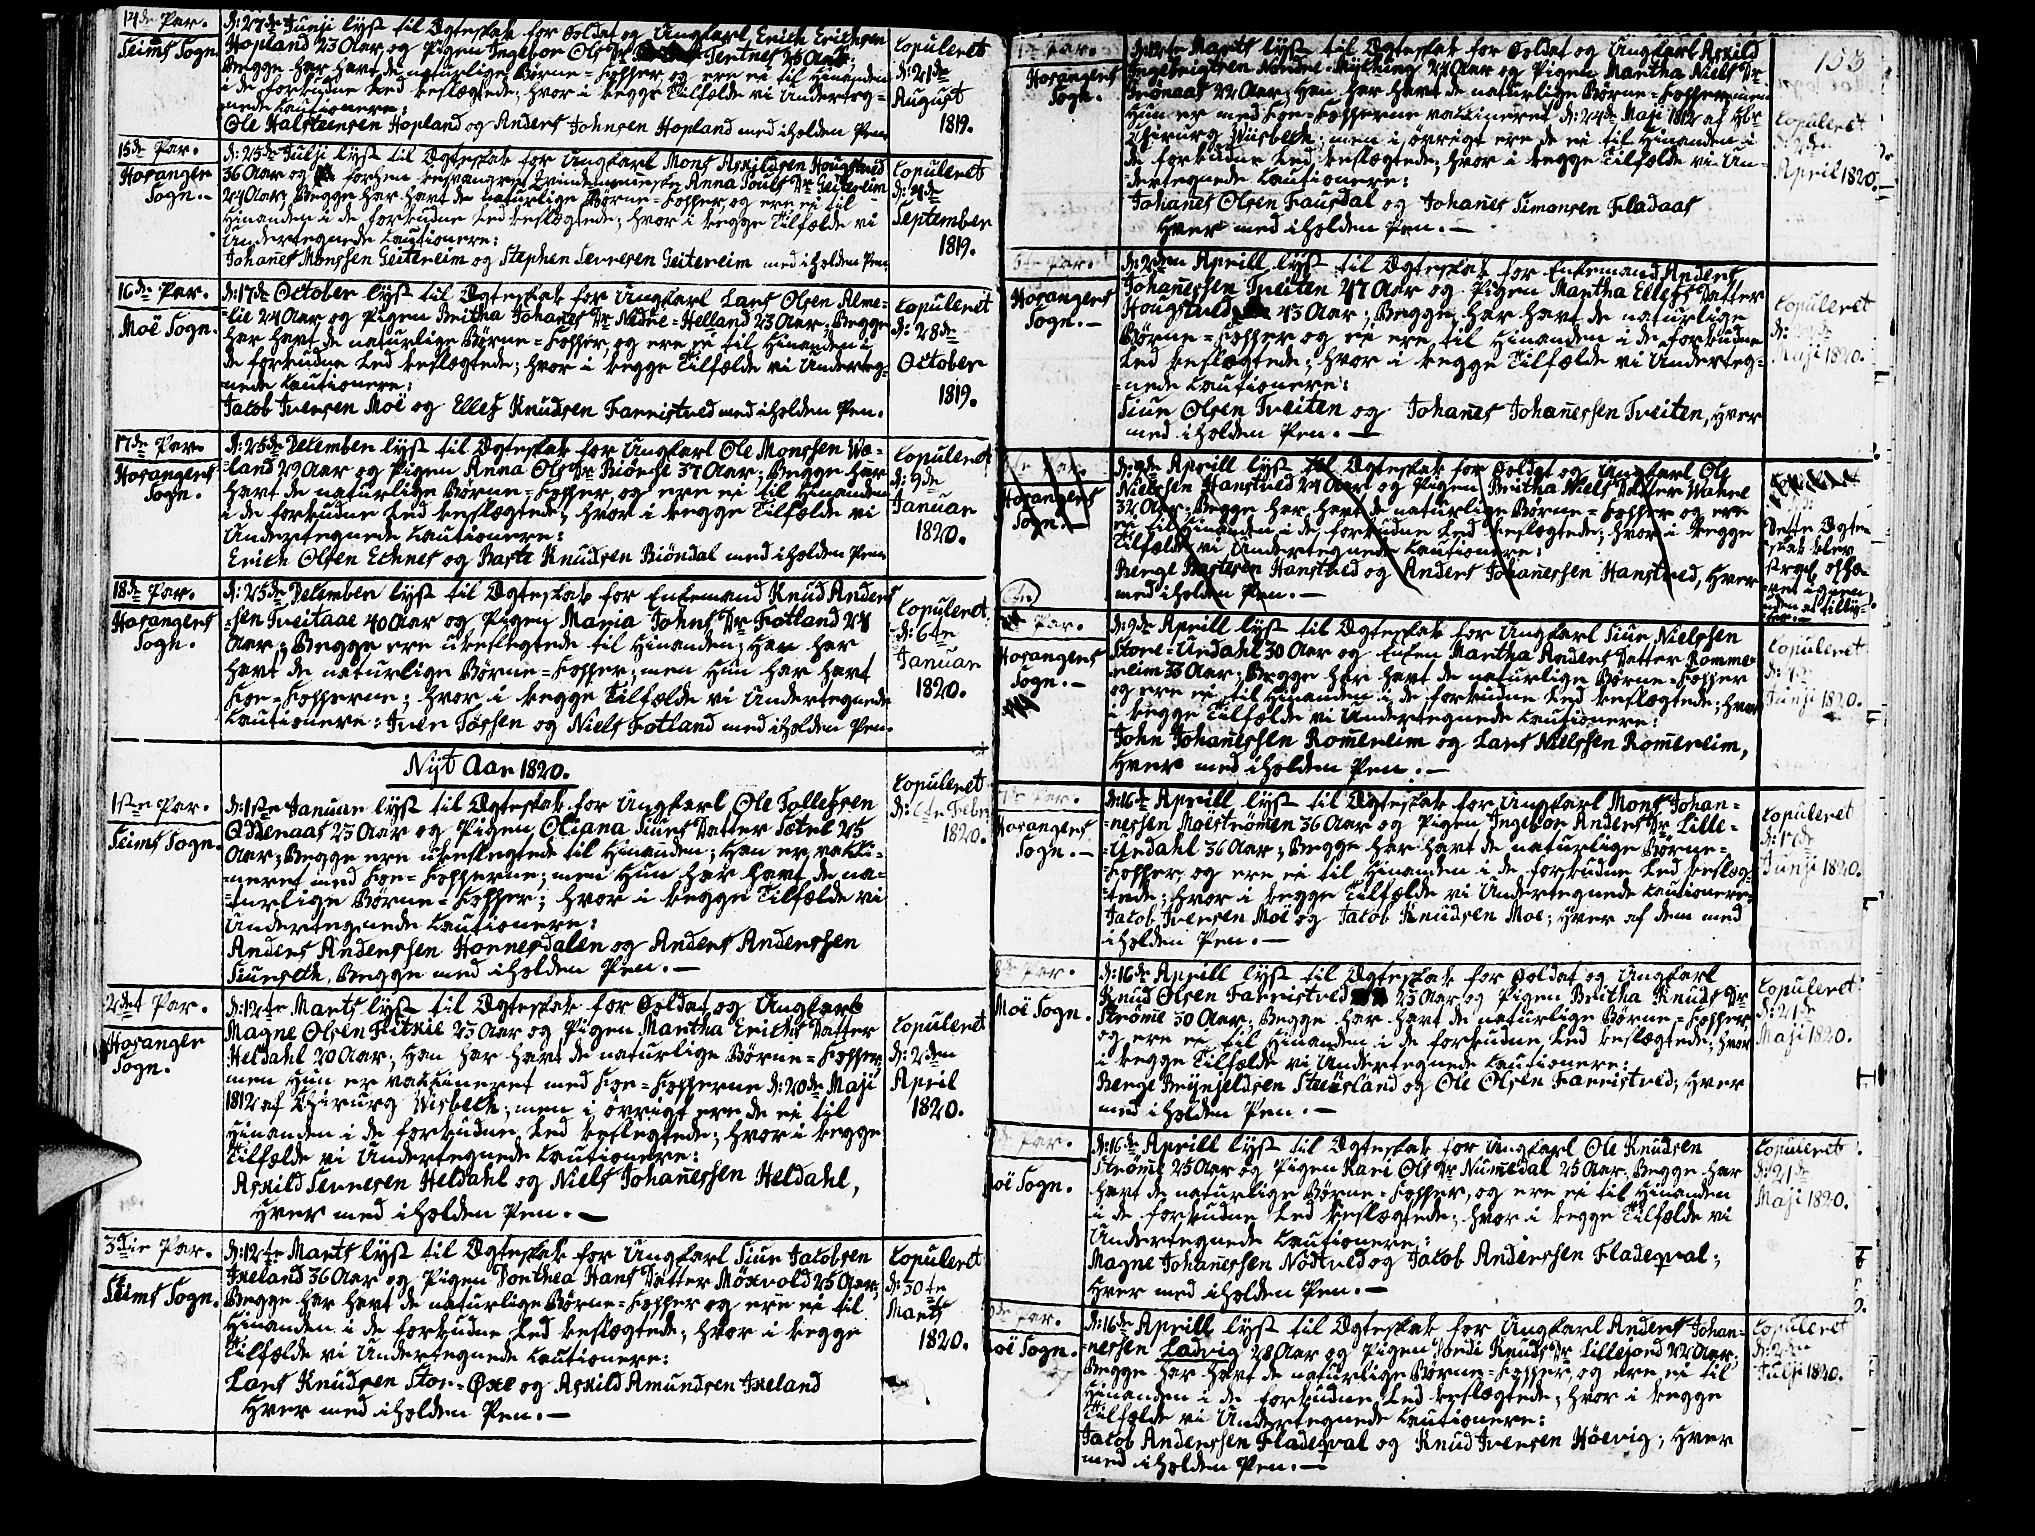 14de Par.
Seims Sogn
d: 27de Junji lyst til Ægteskab for Soldat og Ungkarl Erich Erichsen
Hopland 23 Aar, og Pigen Ingebor Ols Dr Tentnes 26 Aar;
Begge har havt de naturlige Børne-Kopper og ere ei til Hinanden
i de forbudne Led beslægtede; hvor i begge Tilfælde vi Underteg-
nede Cautionere:
Ole Halsteensen Hopland og Anders Johnsen Hopland med iholden Pen.
Copuleret
d: 21de
August
1819.
15de Par.
Hosanger
Sogn.
d: 25de Julji lyst til Ægteskab for Ungkarl Mons Askildsen Hougstvid
36 Aar og forhen besvangret Qvindemenneske Anna Pouls Dr Geitereim
24 Aar; Begge har havt de naturlige Børne-Kopper og ere ei til
Hinanden i de forbudne Led beslægtede; hvor i begge Tilfælde vi
Undertegnede Cautionere:
Johanes Monssen Geitereim og Stephen Sevresen Geitereim med iholden Pen
Copuleret
d: 4de
September
1819.
16de Par.
Moë Sogn.
d: 17de October lyst til Ægteskab for Ungkarl Lars Olsen Alme-
lie 24 Aar og Pigen Britha Johanes Dr Nedre-Helland 23 Aar; Begge
har havt de naturlige Børne-Kopper og ere ei til Hinanden i
de forbudne Led beslægtede; hvor i begge Tilfælde vi Underteg-
nede Cautionere:
Jacob Iversen Moë og Ellef Knudsen Farristved med iholden Pen.
Copuleret
d: 28de
October
1819.
17de Par
Hosangers
Sogn.
d: 25de December lyst til Ægteskab for Ungkarl Ole Monssen Wa-
land 29 Aar og Pigen Anna Ols Dr Biönse 37 Aar; Begge har
havt de naturlige Børne-Kopper og ere ei til Hinanden
i de forbudne Led beslægtede; hvor i begge Tilfælde vi
Undertegnede Cautionere:
Erich Olsen Echnes og Baste Knudsen Biöndal med iholden Pen
Copuleret
d: 9de
Januar
1820.
18de Par.
Hosangers
Sogn.
d: 25de December lyst til Ægteskab for Enkemand Knud Anders
sen Treitaae 40 Aar og Pigen Maria Johns Dr Fotland 24
Aar; Begge ere ubeslegtede til Hinanden; Han har
havt de naturlige Børne-Kopper; men Hun har havt
Koe-Kopperne; hvor i begge Tilfælde vi Undertegnede
Cautionere: Iver Jössen og Niels Fotland med iholden Pen.
Copuleret
d: 6te
Januar
1820.
Nyt Aar 1820.
1ste Par.
Seims Sogn.
d: 1ste Januar lyst til Ægteskab for Ungkarl Ole Tollefsen
Odnenaas 23 Aar og Pigen Oliana Siurs Datter Sætre 25
Aar; Begge ere ubeslegtede til Hinanden; Han er vakci-
neret med Koe-Kopperne; men Hun har havt de na-
turlige Børne-Kopper; hvor i begge Tilfælde vi
Undertegnede Cautionere:
Anders Anderssen Honnesdalen og Anders Anderssen
Siurseth, Begge med iholden Pen.
Copuleret
d: 6te Febr
1820.
2det Par.
Hosanger
Sogn.
d: 12te Marts lyst til Ægteskab for Soldat og Ungkarl
Magne Olsen Fitxie 23 Aar og Pigen Martha Erichs Datter
Heldahl 20 Aar; Han har havt de naturlige Børne-Kopper
men Hun er vaksineret med Koe-Kopperne d: 20de Maji
1812 af Chirurg Wisbech; men i övrigt ere de ei til
Hinanden i de forbudne Led beslegtede; hvor i begge
Tilfælde vi Undertegnede Cautionere:
Askild Sevresen Heldahl og Niels Johanessen Heldahl,
Hver med iholden Pen.
Copuleret
d: 2den
April
1820.
3die Par.
Seims Sogn.
d: 12te Marts lyst til Ægteskab for Ungkarl Siur Jacobsen
Ixeland 36 Aar og Pigen Dorthea Hans Datter Möxvold 25 Aar;
Begge har havt de naturlige Børne-Kopper og ere ei til
Hinanden i de forbudne Led beslægtede; hvor i begge
Tilfælde vi Undertegnede Cautionere:
Lars Knudsen Stor-Öxe og Askild Amundsen Ixeland
Hver med iholden Pen.
Copuleret
d: 30te
Marts
1820.
153
Par.
Hosangers
Sogn.
d: 12te Marts lyst til Ægteskab for Soldat og Ungkarl Askild
Ingebrigtsen Nordre-Mykking 24 Aar og Pigen Martha Niels Dr
Trönaas 22 Aar; Han har havt de naturlige Børne-Kopper men
Hun er med Koe-Kopperne vakcineret d: 24de Maji 1812 af Hör
Chirurg Wiisbech; men i övrigt ere de ei til Hinanden i
de forbudne Led beslægtede; hvor i begge Tilfælde vi Un-
dertegnede Cautionere:
Johanes Olsen Fausdal og Johanes Simonsen Fladaas
Hver med iholden Pen.
Copuleret
d: 2den
April 1820.
5te Par.
Hosangers
Sogn.
d: 2den Aprill lyst til Ægteskab for Enkemand Anders
Johanessen Treiten 47 Aar og Pigen Martha Ellefs Datter
Hougstved 43 Aar; Begge har havt de naturlige
Børne-Kopper og ei ere til Hinanden i de forbudne
Led beslægtede; hvor i begge Tilfælde vi Underteg-
nede Cautionere:
Siur Olsen Treiten og Johanes Johanessen Treiten, Hver
med iholden Pen.
Copuleret
Maji 1820.
Par.
Hosangers
Sogn.
d: 9de Aprill lyst til Ægteskab for Soldat og Ungkarl Ole
Nielssen Hanstved 24 Aar og Pigen Britha Niels Datter Wahne
32 Aar; Begge har havt de naturlige Børne-Kopper og ere
ei til Hinanden i de forbudne Led beslægtede; hvor i begge
Tilfælde vi Undertegnede Cautionere:
Berge Bastesen Hanstved og Anders Johanessen Hanstved, Hver
med iholden Pen.
Dette Ægte-
skab blev
strax opha-
vet igien
Par.
Hosangers
Sogn.
d: 9de Aprill lyst til Ægteskab for Ungkarl Siur Nielssen
Store-Undahl 30 Aar og Enken Martha Anders Datter Romme-
reim 33 Aar; Begge har havt de naturlige Børne-Kopper
og ere ei til Hinanden i de forbudne Led beslægtede; hvor
i begge Tilfælde vi Undertegnede Cautionere:
John Johanessen Romereim og Lars Nielssen Romereim,
Hver med iholden Pen.
Copuleret
Junji 1820.
Par.
Hosangers
Sogn.
d: 16de Aprill lyst til Ægteskab for Ungkarl Mons Johan-
nessen Molströmen 36 Aar og Pigen Ingebor Anders Dr Lille-
Undahl 36 Aar; Begge har havt de naturlige Børne-
Kopper og ere ei til Hinanden i de forbudne Led beslæg-
tede; hvor i begge Tilfælde vi Undertegnede Cautionere:
Jacob Iversen Moë og Jacob Knudsen Moe; Hver af dem med
iholden Pen.
Copuleret
d: 17de
Junji 1820.
Par.
Moë Sogn.
d: 16de Aprill lyst til Ægteskab for Soldat og Ungkarl
Knud Olsen Farristved 23 Aar og Pigen Britha Knuds Dr
Ströme 30 Aar; Begge har havt de naturlige Børne-Kopper
og ere ei til Hinanden i de forbudne Led beslægtede; hvor
i begge Tilfælde vi Undertegnede Cautionere:
Berge Brynjeldsen Steusland og Ole Olsen Farristved; Hver
med iholden Pen.
Copuleret
d: 21de
Maji 1820.
Par.
oë Sogn.
d: 16de Aprill lyst til Ægteskab for Ungkarl Ole Knudsen
Ströme 25 Aar og Pigen Kari Ols Dr Numedal 25 Aar; Begge har
havt de naturlige Børne-Kopper, og ere ei til Hinanden
i de forbudne Led beslægtede; hvor i begge Tilfælde vi
Undertegnede Cautionere:
Magne Johanessen Nödtved og Jacob Anderssen Fladeqval;
Hver med iholden Pen.
Copuleret
d: 21de
Maji 1820.
Par.
oë Sogn.
d: 16de Aprill lyst til Ægteskab for Ungkarl Anders Johan-
nessen Ladvig 28 Aar og Pigen Knuds Dr Lillejord 22 Aar;
Begge har havt de naturlige Børne-Kopper og ere ei til
Hinanden i de forbudne Led beslægtede; hvor i begge
Tilfælde vi Undertegnede Cautionere:
Jacob Anderssen Fladeqval og Knud Iversen Höevig; Hver
med iholden Pen.
Copuleret
Julji 1820.